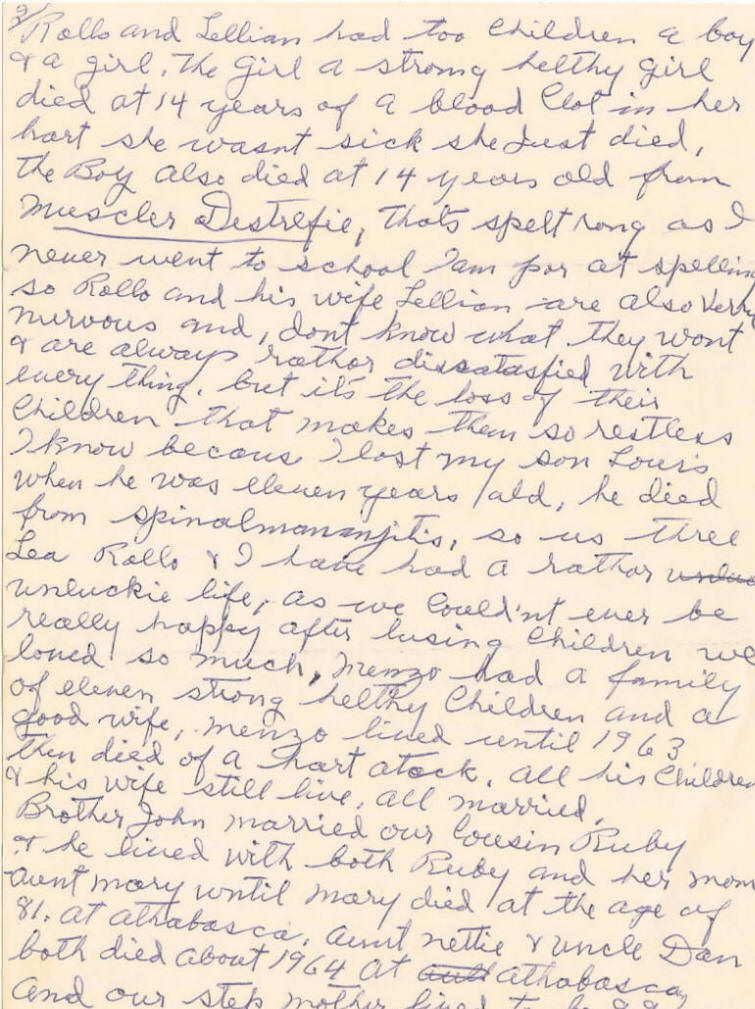 3/ Rollo and Lellian had too Children a boy
& a girl, the girl a strong helthy girl
died at 14 years of a blood Clot in her
hart she wasnt sick she Just died,
the Boy also died at 14 years old from
Muscler Destrefie, thats spelt rong as I
never went to school I am por at spelling
so Rollo and his wife Lellian are also verry
nurvous and, dont know what they wont
& are always rathor dissatasfied with
every thing. but it's the loss of their
Children that makes them so restless
I know becaus I lost my son Louis
when he was eleven years old, he died
from spinalmananjitis, so us three
Lea Rollo & I have had a rathor
unluckie life, as we Could'nt ever be
really happy after lusing Children we
loved so much, Menzo had a family
of eleven strong helthy Children and a
good wife, menzo lived until 1963
then died of a hart atack. all his Children
& his wife still live, all married,
Brother John married our Cousin Ruby
& he lived with both Ruby and her mom
aunt mary until mary died at the age of
81. at athabasca, aunt nettie & uncle Dan
both died about 1964 at athabasca,
and our step mother lived to be